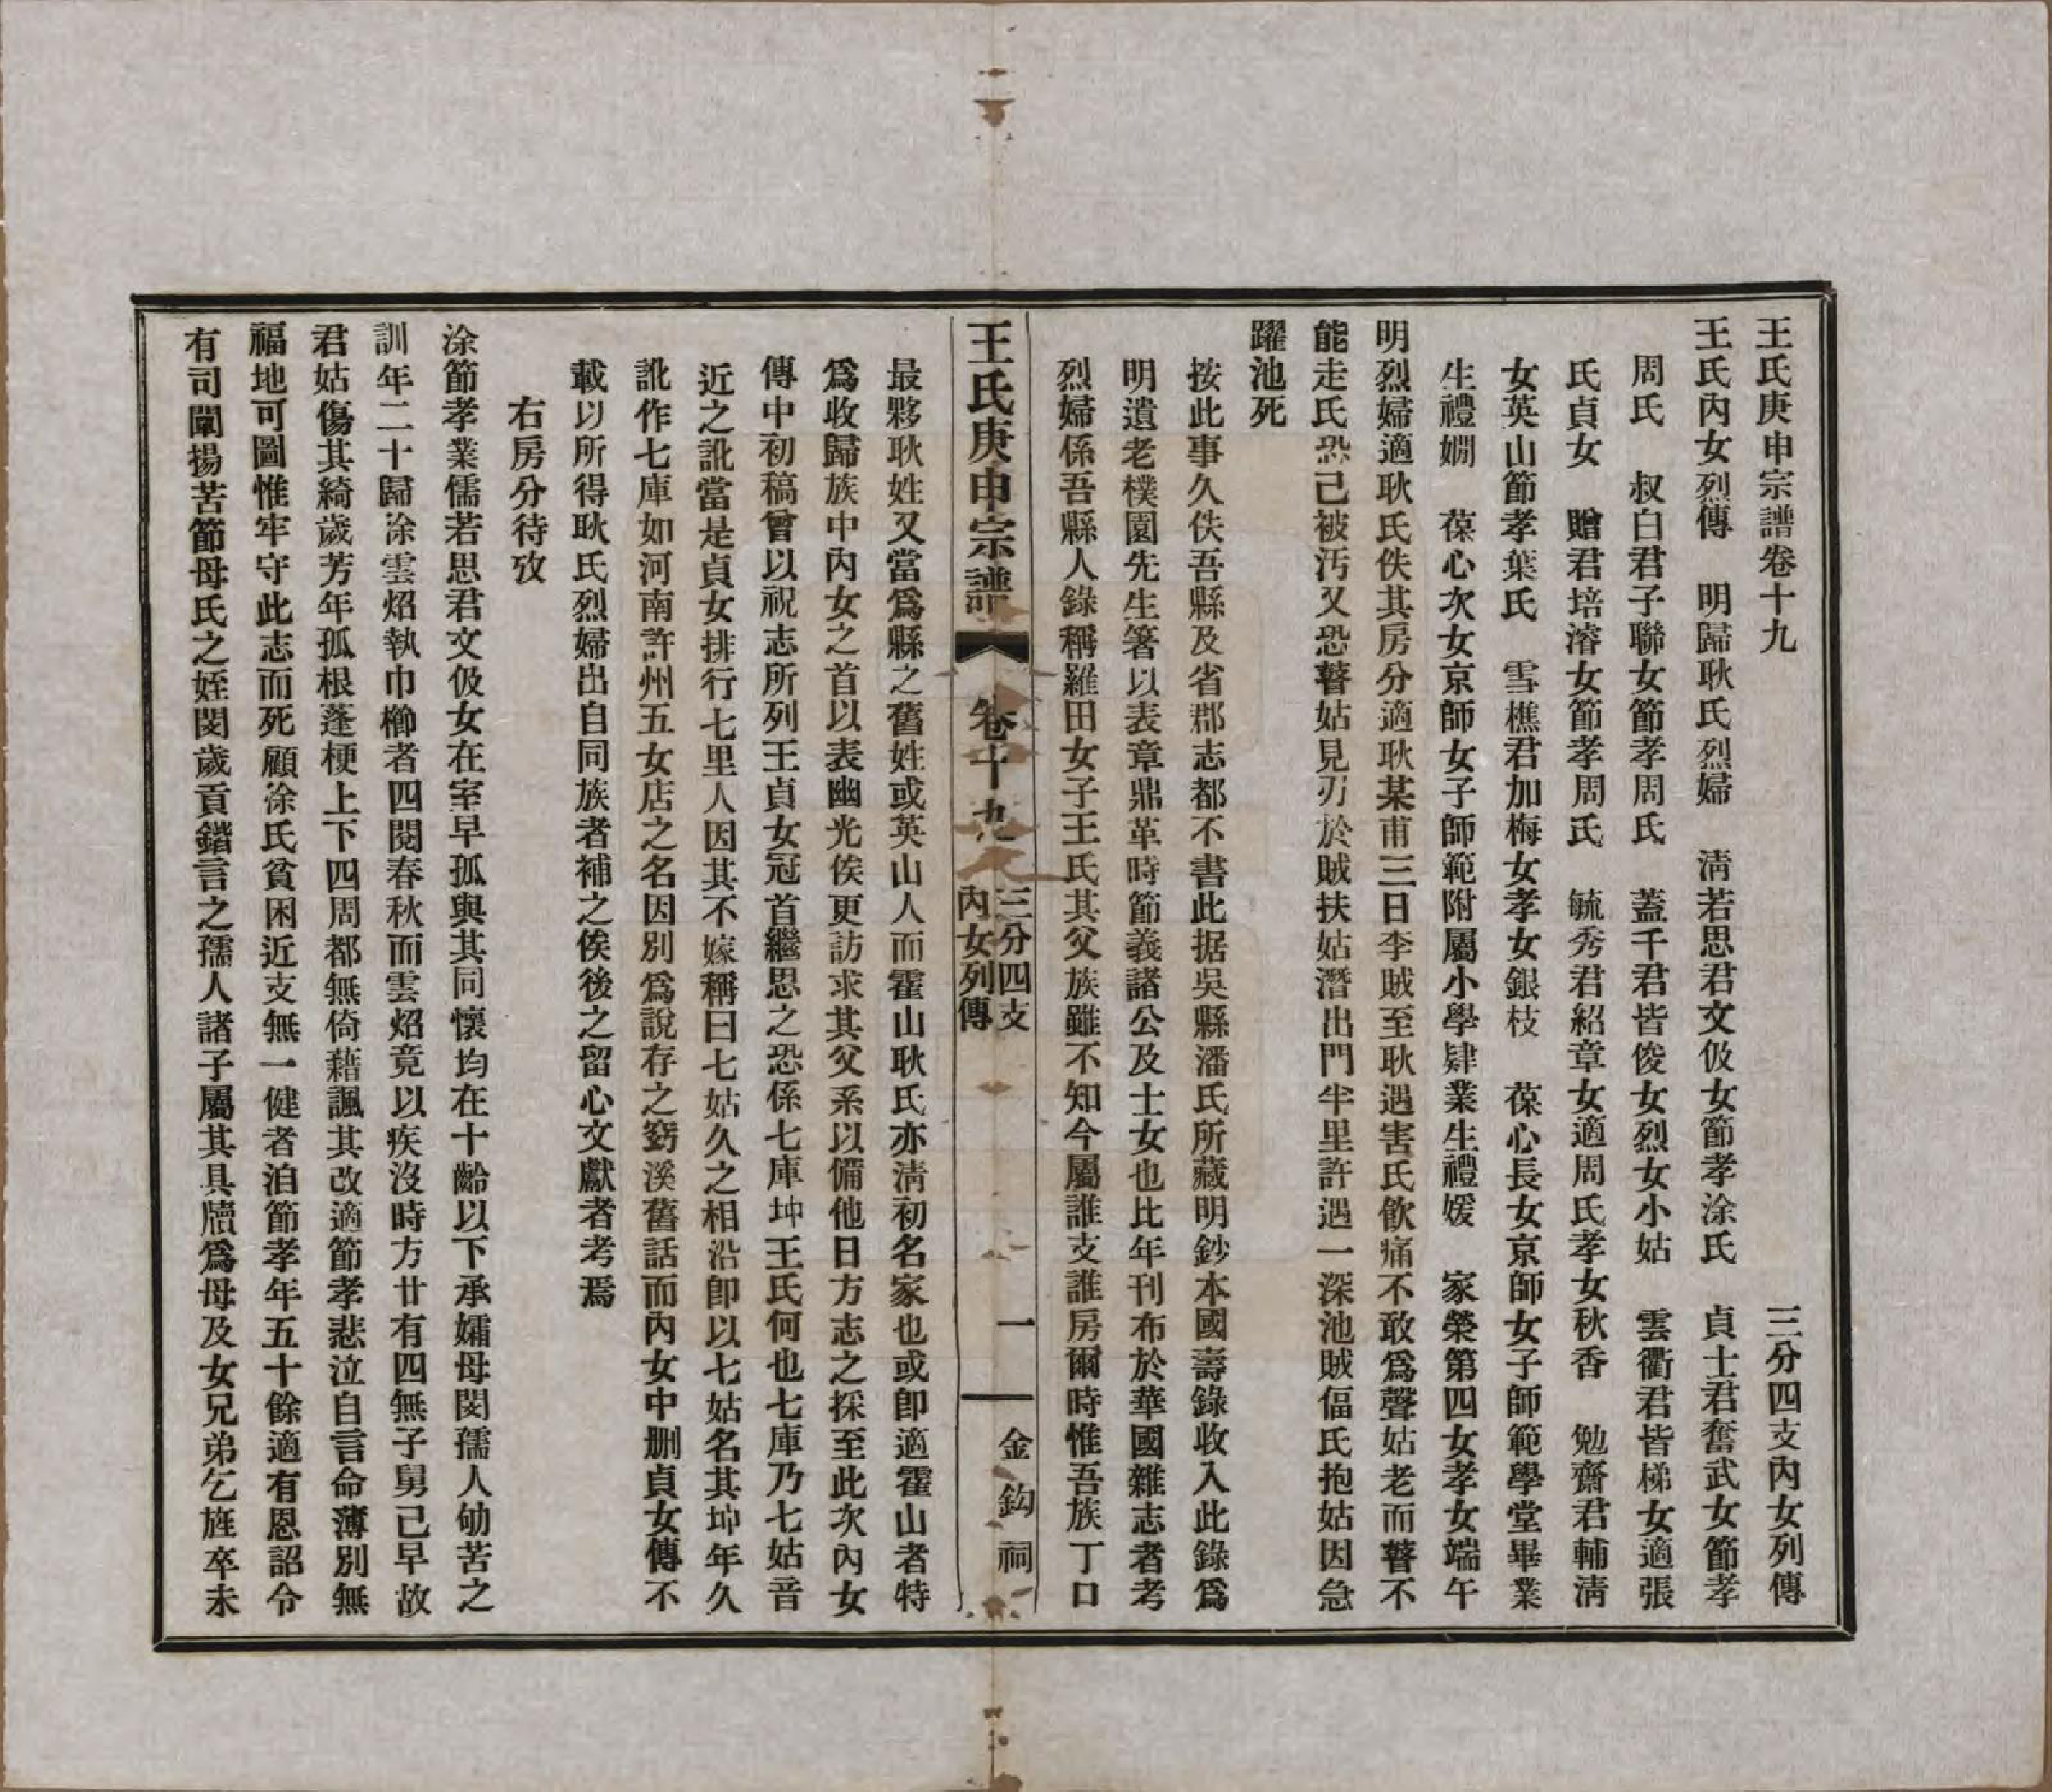 王氏庚申宗譜卷十九
三分四支內女列傳
王氏內女烈傳　明歸耿氏烈婦　淸若思君文伋女節孝涂氏　貞士君奮武女節孝
周氏　叔白君子聯女節孝周氏　蓋千君皆俊女烈女小姑　雲衢君皆梯女適張
氏貞女　贈君培濬女節孝周氏　毓秀君紹章女適周氏孝女秋香　勉齋君輔淸
女英山節孝葉氏　雪樵君加梅女孝女銀枝　葆心長女京師女子師範學堂畢業
生禮嫺　葆心次女京師女子師範附屬小學肄業生禮媛　家榮第四女孝女端午
明烈婦適耿氏佚其房分適耿某甫三日李賊至耿遇害氏飮痛不敢爲聲姑老而瞽不
能走氏恐己被汚又恐瞽姑見刃於賊扶姑潛出門半里許遇一深池賊偪氏抱姑因急
躍池死
按此事久佚吾縣及省郡志都不書此据吳縣潘氏所藏明鈔本國壽錄收入此錄爲
明遺老樸園先生箸以表章鼎革時節義諸公及士女也比年刊布於華國雜志者考
烈婦係吾縣人錄稱羅田女子王氏其父族雖不知今屬誰支誰房爾時惟吾族丁口
王氏庚申宗譜
卷十九
三分四支
內女列傳
一
金鈎祠
最夥耿姓又當爲縣之舊姓或英山人而霍山耿氏亦淸初名家也或卽適霍山者特
爲收歸族中內女之首以表幽光俟更訪求其父系以備他日方志之採至此次內女
傳中初稿曾以祝志所列王貞女冠首繼思之恐係七庫坤王氏何也七庫乃七姑音
近之訛當是貞女排行七里人因其不嫁稱曰七姑久之相沿卽以七姑名其坤年久
訛作七庫如河南許州五女店之名因別爲說存之窮溪舊話而內女中删貞女傳不
載以所得耿氏烈婦出自同族者補之俟後之留心文獻者考焉
右房分待攷
涂節孝業儒若思君文伋女在室早孤與其同懷均在十齡以下承孀母閔孺人劬苦之
訓年二十歸涂雲炤執巾櫛者四閱春秋而雲炤竟以疾沒時方廿有四無子舅己早故
君姑傷其綺歲芳年孤根蓬梗上下四周都無倚藉諷其改適節孝悲泣自言命薄別無
福地可圖惟牢守此志而死顧涂氏貧困近支無一健者洎節孝年五十餘適有恩詔令
有司闡揚苦節母氏之姪閔歲貢鍇言之孺人諸子屬其具牘爲母及女兄弟乞旌卒未